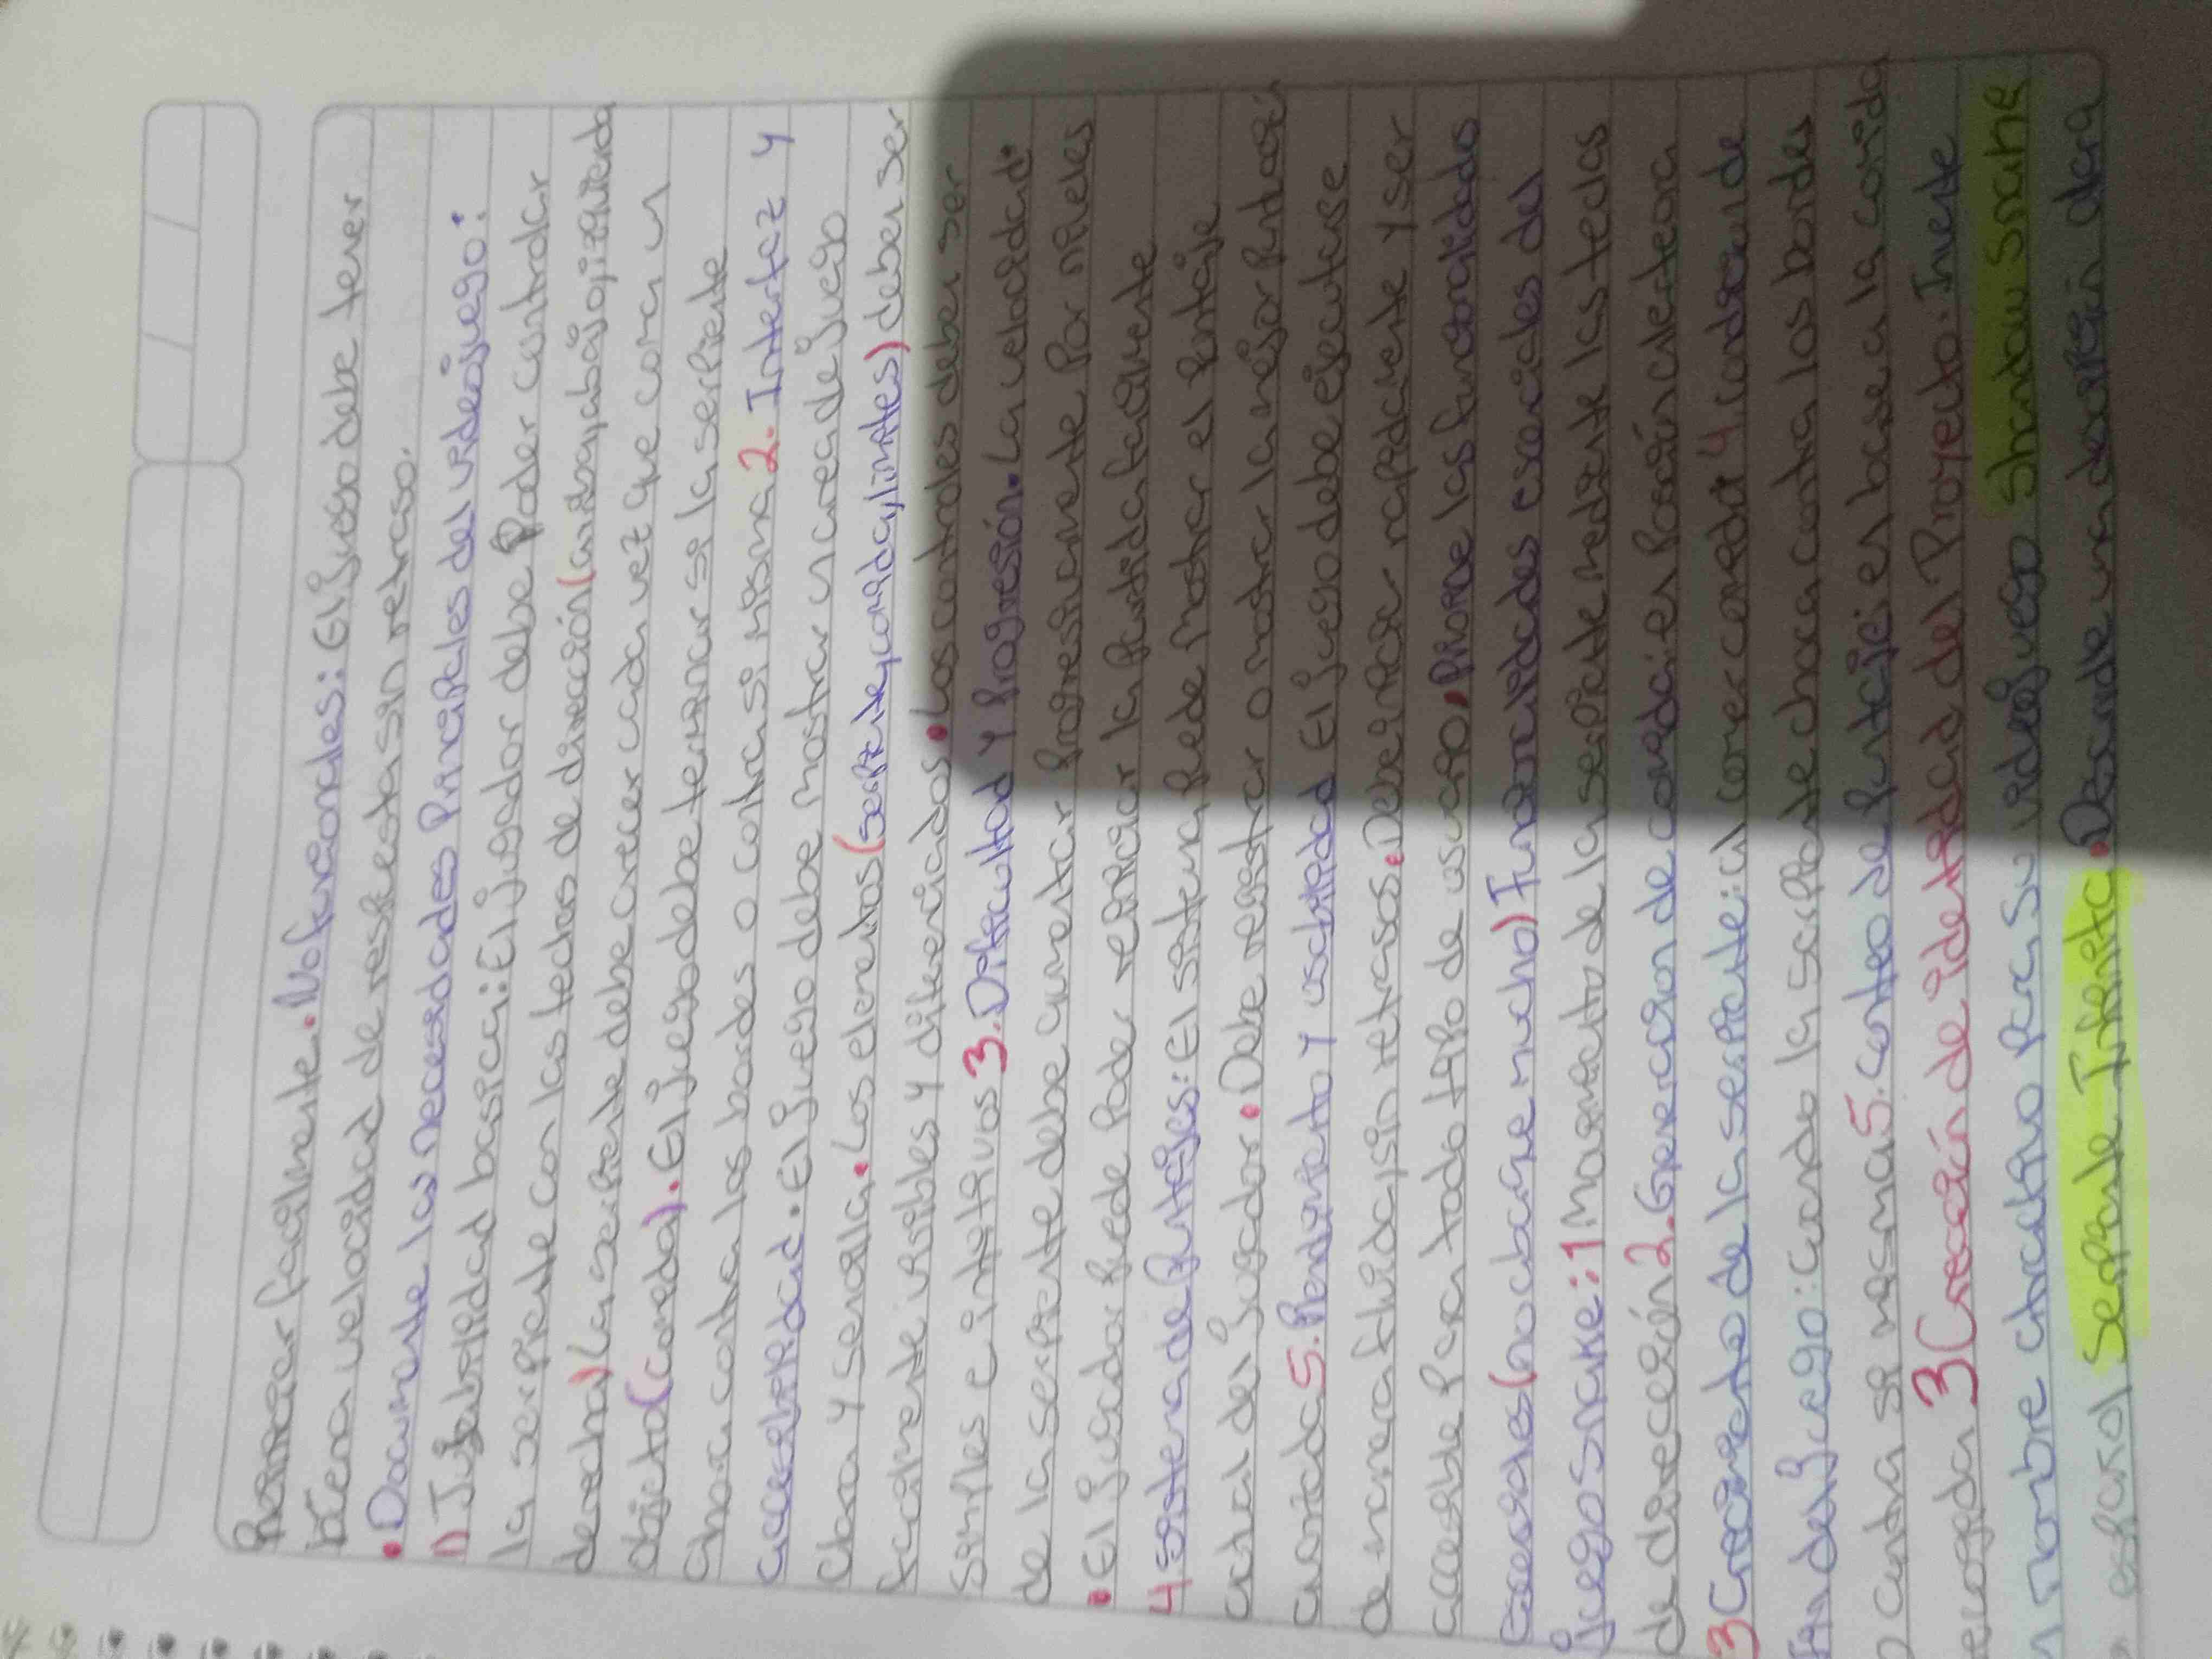 Reiniciar facilmente. No funcionales: El juego debe tener
buena velocidad de respuesta sin retraso.
• Documente las necesidades Principales del videojuego:
1) Jugabilidad basica: El jugador debe Poder controlar
la serpiente con las teclas de dirección (arriba, abajo, izquierda
derecha) La serpiente debe crecer cada vez que coma un
objeto (comida). El juego debe terminar si la serpiente
choca contra los bordes o contra si misma 2. Interfaz y
accesibilidad. El juego debe mostrar un area de juego
Clara y sencilla. Los elementos (serpiente, comida, limites) deben ser
facilmente visibles y diferenciados. Los controles deben ser
simples e intuitivos 3. Dificultad y Progresión. La velocidad
de la serpiente debe aumentar Progresivamente Por niveles
• El jugador puede Poder reiniciar la Partida facilmente
4 sistema de Puntajes: El sistema puede Mostrar el Puntaje
actual del jugador. Debe registrar o mostrar la mejor
5. Rendimiento y usabilidad El juego debe ejecutarse
de manera fluida, sin retrasos. Debe iniciar rapidamente y ser
accesible Para todo tipo de usuario, Priorice las funcionalidades
esenciales (no abarque mucho) Funcionalidades esenciales del
juego snake: 1 Movimiento de la serpiente mediante las teclas
de dirección 2. Generacion de comida: en Posición aleatoria
3 Crecimiento de la serpiente: al comer comida 4 condicion de
fin del juego: cuando la serpiente choca contra los bordes
o contra si misma 5. conteo de Puntaje: en base a la comida
3 Creación de identidad del Proyecto. Invente
un nombre atractivo para su videojuego
español Serpiente Infinita. Desarrolle una descripción clara